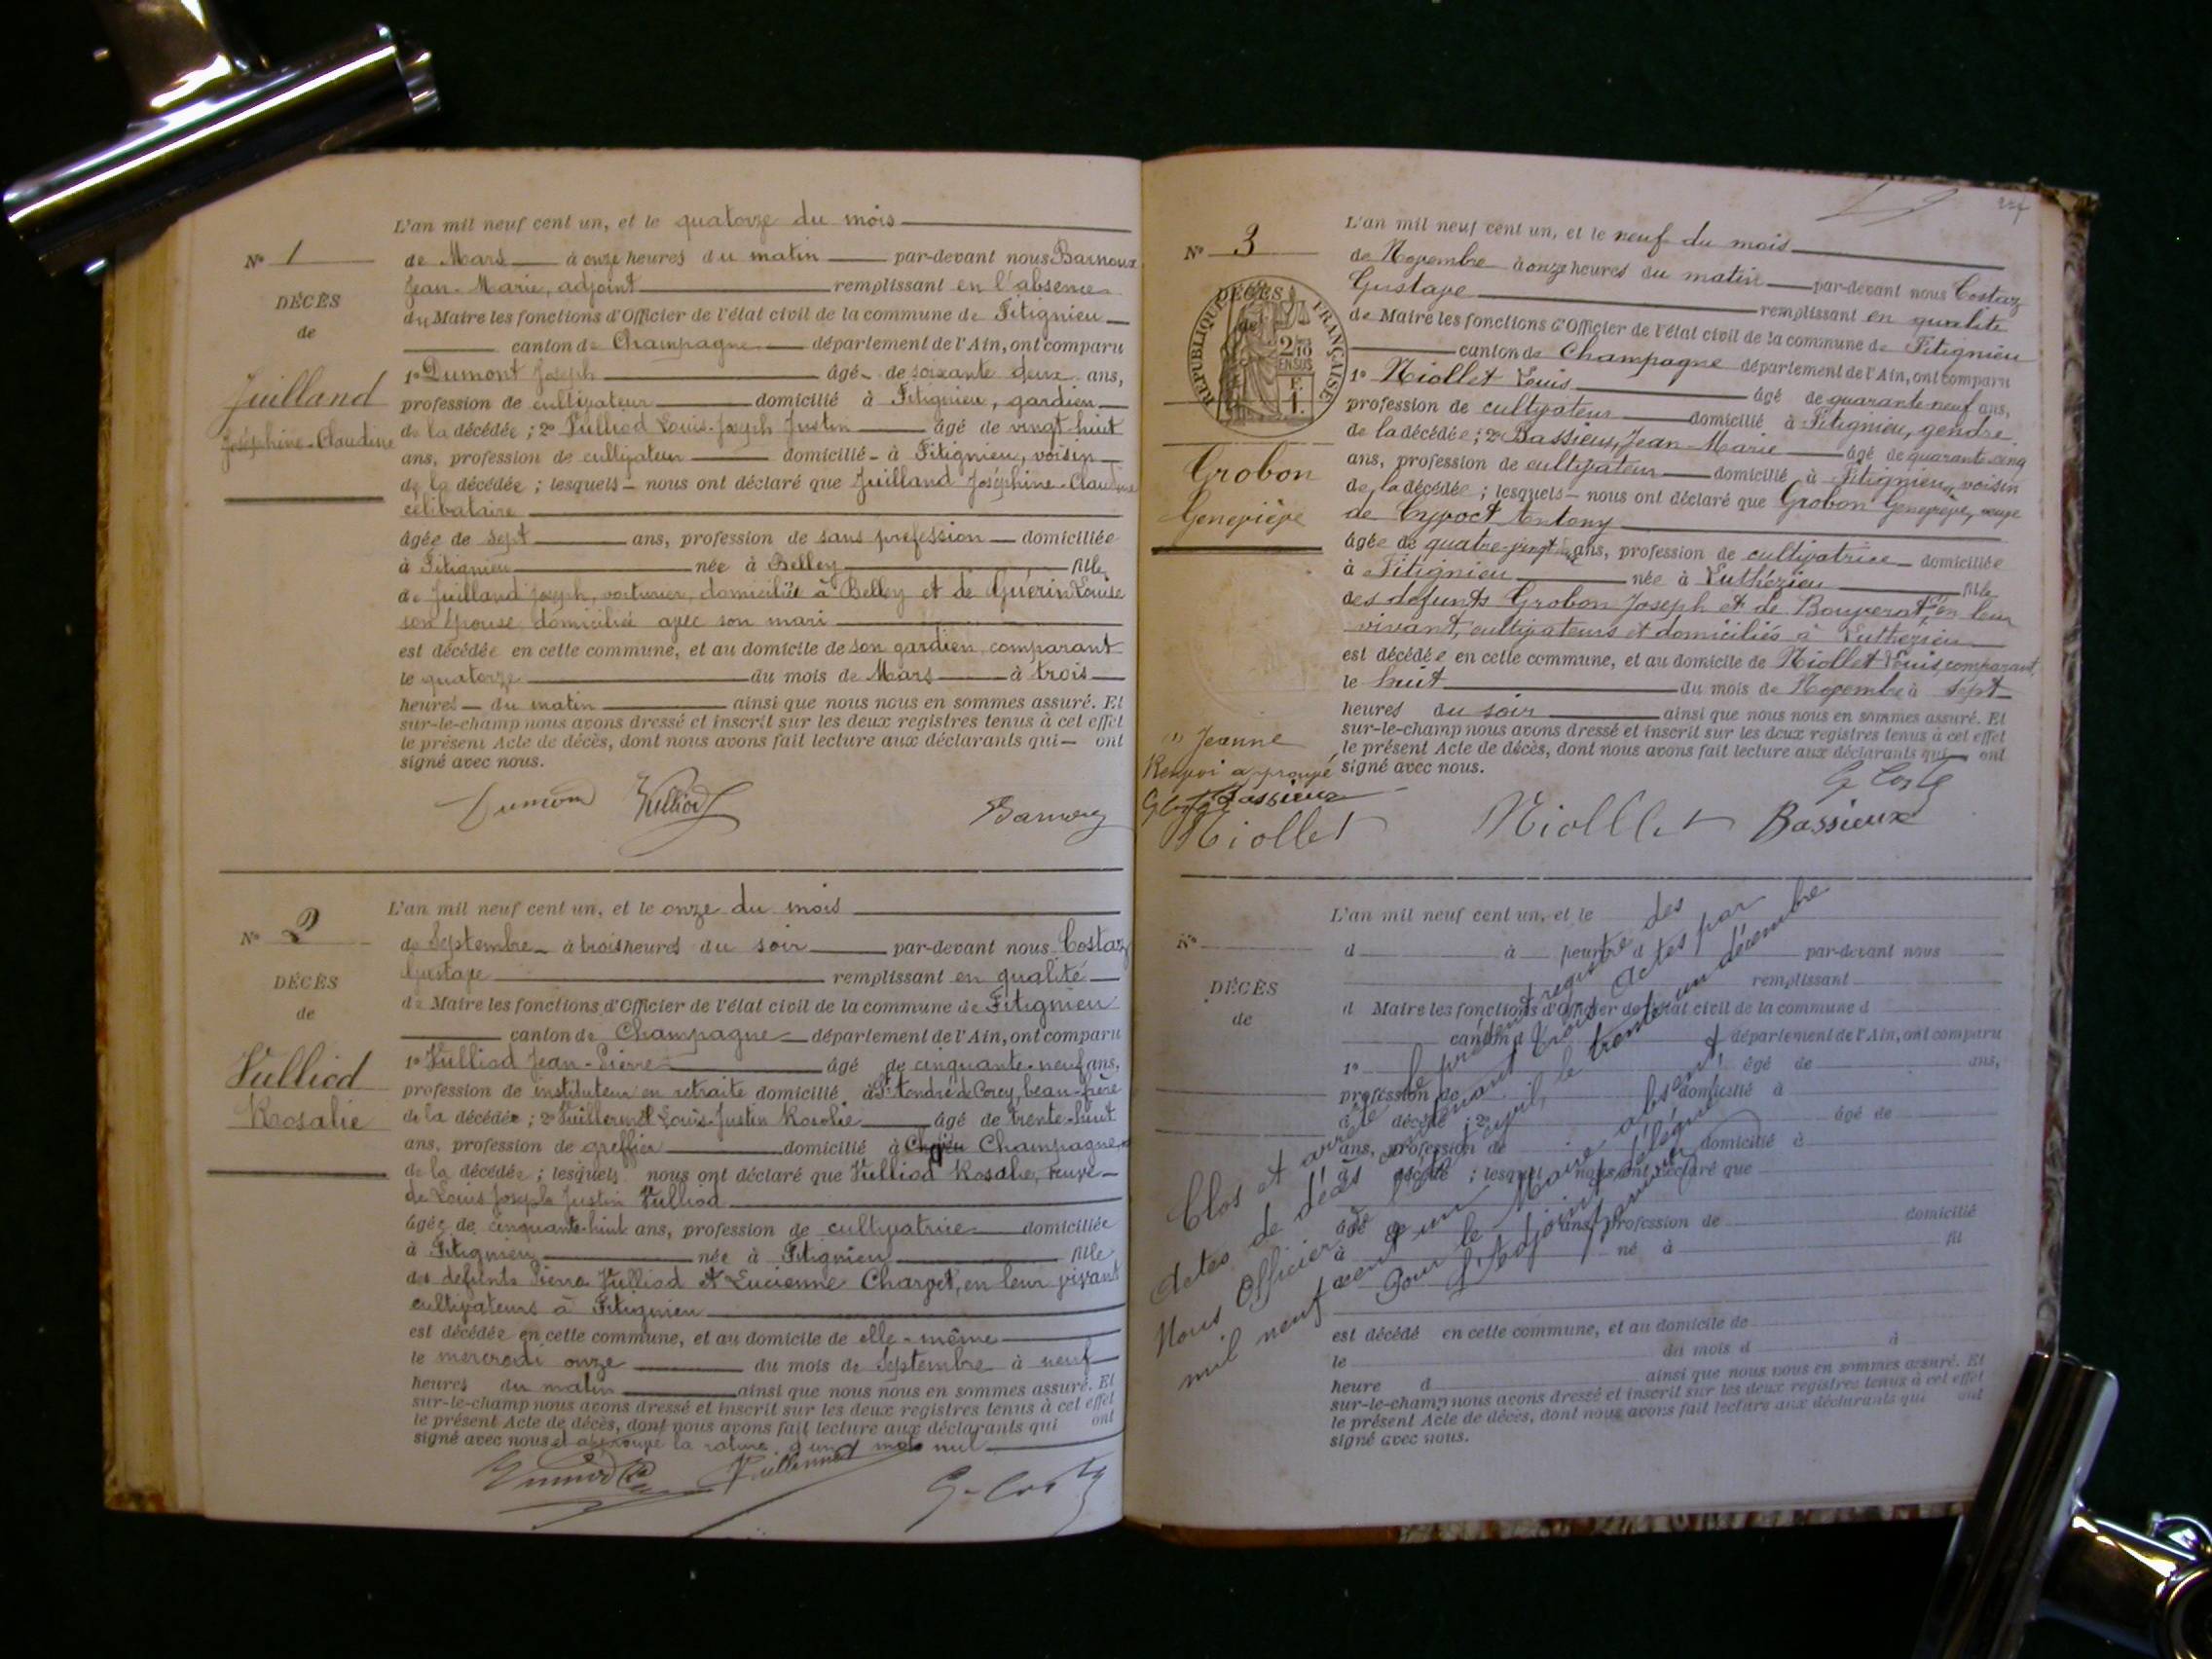 L'an mil neuf cent un, et le quatorze du mois
N° 1
de Mars à onze heures du matin par-devant nous Barnoux
DÉCÈS
Jean-Marie, adjoint remplissant en l'absence
de
du Maire les fonctions d'Officier de l'état civil de la commune de Fitignieu
canton de Champagne département de l'Ain, ont comparu
Juilland
Joséphine-Claudine
1° Dumont Joseph âgé de soixante deux ans,
profession de cultivateur domicilié à Fitignieu, gardien
de la décédée ; 2° Vulliod Louis-Joseph Justin âgé de vingt-huit
ans, profession de cultivateur domicilié à Fitignieu, voisin
de la décédée ; lesquels nous ont déclaré que Juilland Joséphine-Claudine
célibataire
âgée de sept ans, profession de sans profession domiciliée
à Fitignieu née à Belley fille
de Juilland Joseph, voiturier, domicilié à Belley et de Guérin Louise
son épouse, domiciliée avec son mari
est décédée en cette commune, et au domicile de son gardien, comparant
le quatorze du mois de Mars à trois
heures du matin ainsi que nous nous en sommes assuré. Et
sur-le-champ nous avons dressé et inscrit sur les deux registres tenus à cet effet
le présent Acte de décès, dont nous avons fait lecture aux déclarants qui ont
signé avec nous.
Dumont Vulliod
L'an mil neuf cent un, et le onze du mois
N° 2
de Septembre à trois heures du soir par-devant nous Costaz
DÉCÈS
Gustave remplissant en qualité
de
de Maire les fonctions d'Officier de l'état civil de la commune de Fitignieu
canton de Champagne département de l'Ain, ont comparu
Vulliod
Rosalie
1° Vulliod Jean-Pierre âgé de cinquante-neuf ans,
profession de instituteur en retraite domicilié à beau-frère
de la décédée ; 2° Vuillermet Louis-Justin âgé de trente-huit
ans, profession de greffier domicilié à Champagne
de la décédée ; lesquels nous ont déclaré que Vulliod Rosalie, veuve
de Louis Joseph Justin Vulliod
âgée de cinquante-huit ans, profession de cultivatrice domiciliée
à Fitignieu née à Fitignieu fille
des défunts Pierre Vulliod et Lucienne Charvet, en leur vivant
cultivateurs à Fitignieu
est décédée en cette commune, et au domicile de elle-même
le mercredi onze du mois de Septembre à neuf
heures du matin ainsi que nous nous en sommes assuré. Et
sur-le-champ nous avons dressé et inscrit sur les deux registres tenus à cet effet
le présent Acte de décès, dont nous avons fait lecture aux déclarants qui ont
signé avec nous et approuvé la rature d'un mot nul
L'an mil neuf cent un, et le neuf du mois
N° 3
de Novembre à onze heures du matin par-devant nous Costaz
Gustave remplissant en qualité
DÉCÈS
de
RÉPUBLIQUE FRANÇAISE
2/10 EN SUS
1 F.
de Maire les fonctions d'Officier de l'état civil de la commune de Fitignieu
canton de Champagne département de l'Ain, ont comparu
1° Niollet Louis âgé de quarante-neuf ans,
profession de cultivateur domicilié à Fitignieu, gendre
Grobon
Geneviève
de la décédée ; 2° Bassieux, Jean-Marie âgé de quarante-cinq
ans, profession de cultivateur domicilié à Fitignieu, voisin
de la décédée ; lesquels nous ont déclaré que Grobon Geneviève, veuve
de Cyvoct Antony
âgée de quatre-vingt ans, profession de cultivatrice domiciliée
à Fitignieu née à Luthézieu fille
des défunts Grobon Joseph et de Bouverat en leur
vivant, cultivateurs et domiciliés à Luthézieu
est décédée en cette commune, et au domicile de Niollet Louis, comparant
le huit du mois de Novembre à sept
heures du soir ainsi que nous nous en sommes assuré. Et
sur-le-champ nous avons dressé et inscrit sur les deux registres tenus à cet effet
le présent Acte de décès, dont nous avons fait lecture aux déclarants qui ont
signé avec nous.
(1) Jeanne
Renvoi approuvé
Bassieux
Niollet
Niollet Bassieux
L'an mil neuf cent un, et le
N°
d à heure d par-devant nous
DÉCÈS
remplissant
de
d Maire les fonctions d'Officier de l'état civil de la commune d
canton d département de l'Ain, ont comparu
1° âgé de ans,
profession de domicilié à
d décédé ; 2° âgé de
ans, profession de domicilié à
d décédé ; lesquel nous ont déclaré que
âgé de ans, profession de domicilié
à né à fil
est décédé en cette commune, et au domicile de
le du mois d à
heure d ainsi que nous nous en sommes assuré. Et
sur-le-champ nous avons dressé et inscrit sur les deux registres tenus à cet effet
le présent Acte de décès, dont nous avons fait lecture aux déclarants qui ont
signé avec nous.
Clos et arrêté le présent registre des
actes de décès contenant trois actes par
Nous Officier de l'état civil, le trente un décembre
mil neuf cent un
Pour le Maire absent
l'Adjoint délégué